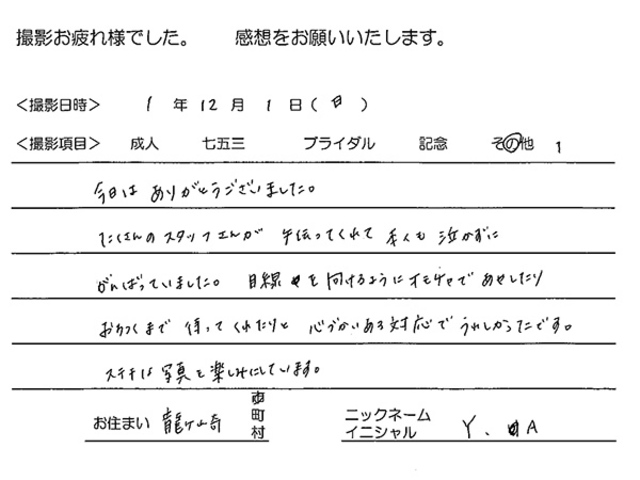 撮影お疲れ様でした。 感想をお願いいたします。
<撮影日時> 1 年 12 月 1 日(日)
<撮影項目> 成人 七五三 ブライダル 記念 その他 1
今日は ありがとうございました。
たくさんの スタッフさんが 手伝ってくれて 本人も 泣かずに
がんばっていました。 目線を 向けるように オモチャで あやしたり
おちつくまで 待って くれたりと 心づかいある 対応で うれしかったです。
ステキな 写真を 楽しみにしています。
お住まい 龍ケ崎 市町村
ニックネーム イニシャル Y. A